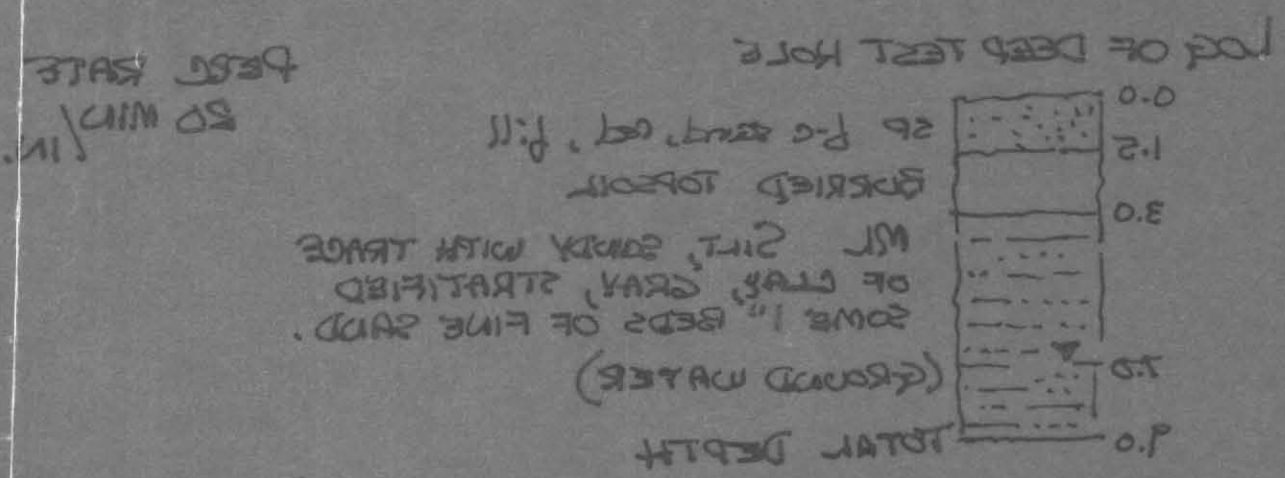 LOG OF DEEP TEST HOLE
PERC RATE
20 MIN/IN.
0.0
SP f-c sand, red, fill
1.5
BURRIED TOPSOIL
3.0
ML SILT, SANDY WITH TRACE
OF CLAY, GRAY, STRATIFIED
SOME 1" BEDS OF FINE SAND.
7.0 (GROUND WATER)
9.0 TOTAL DEPTH